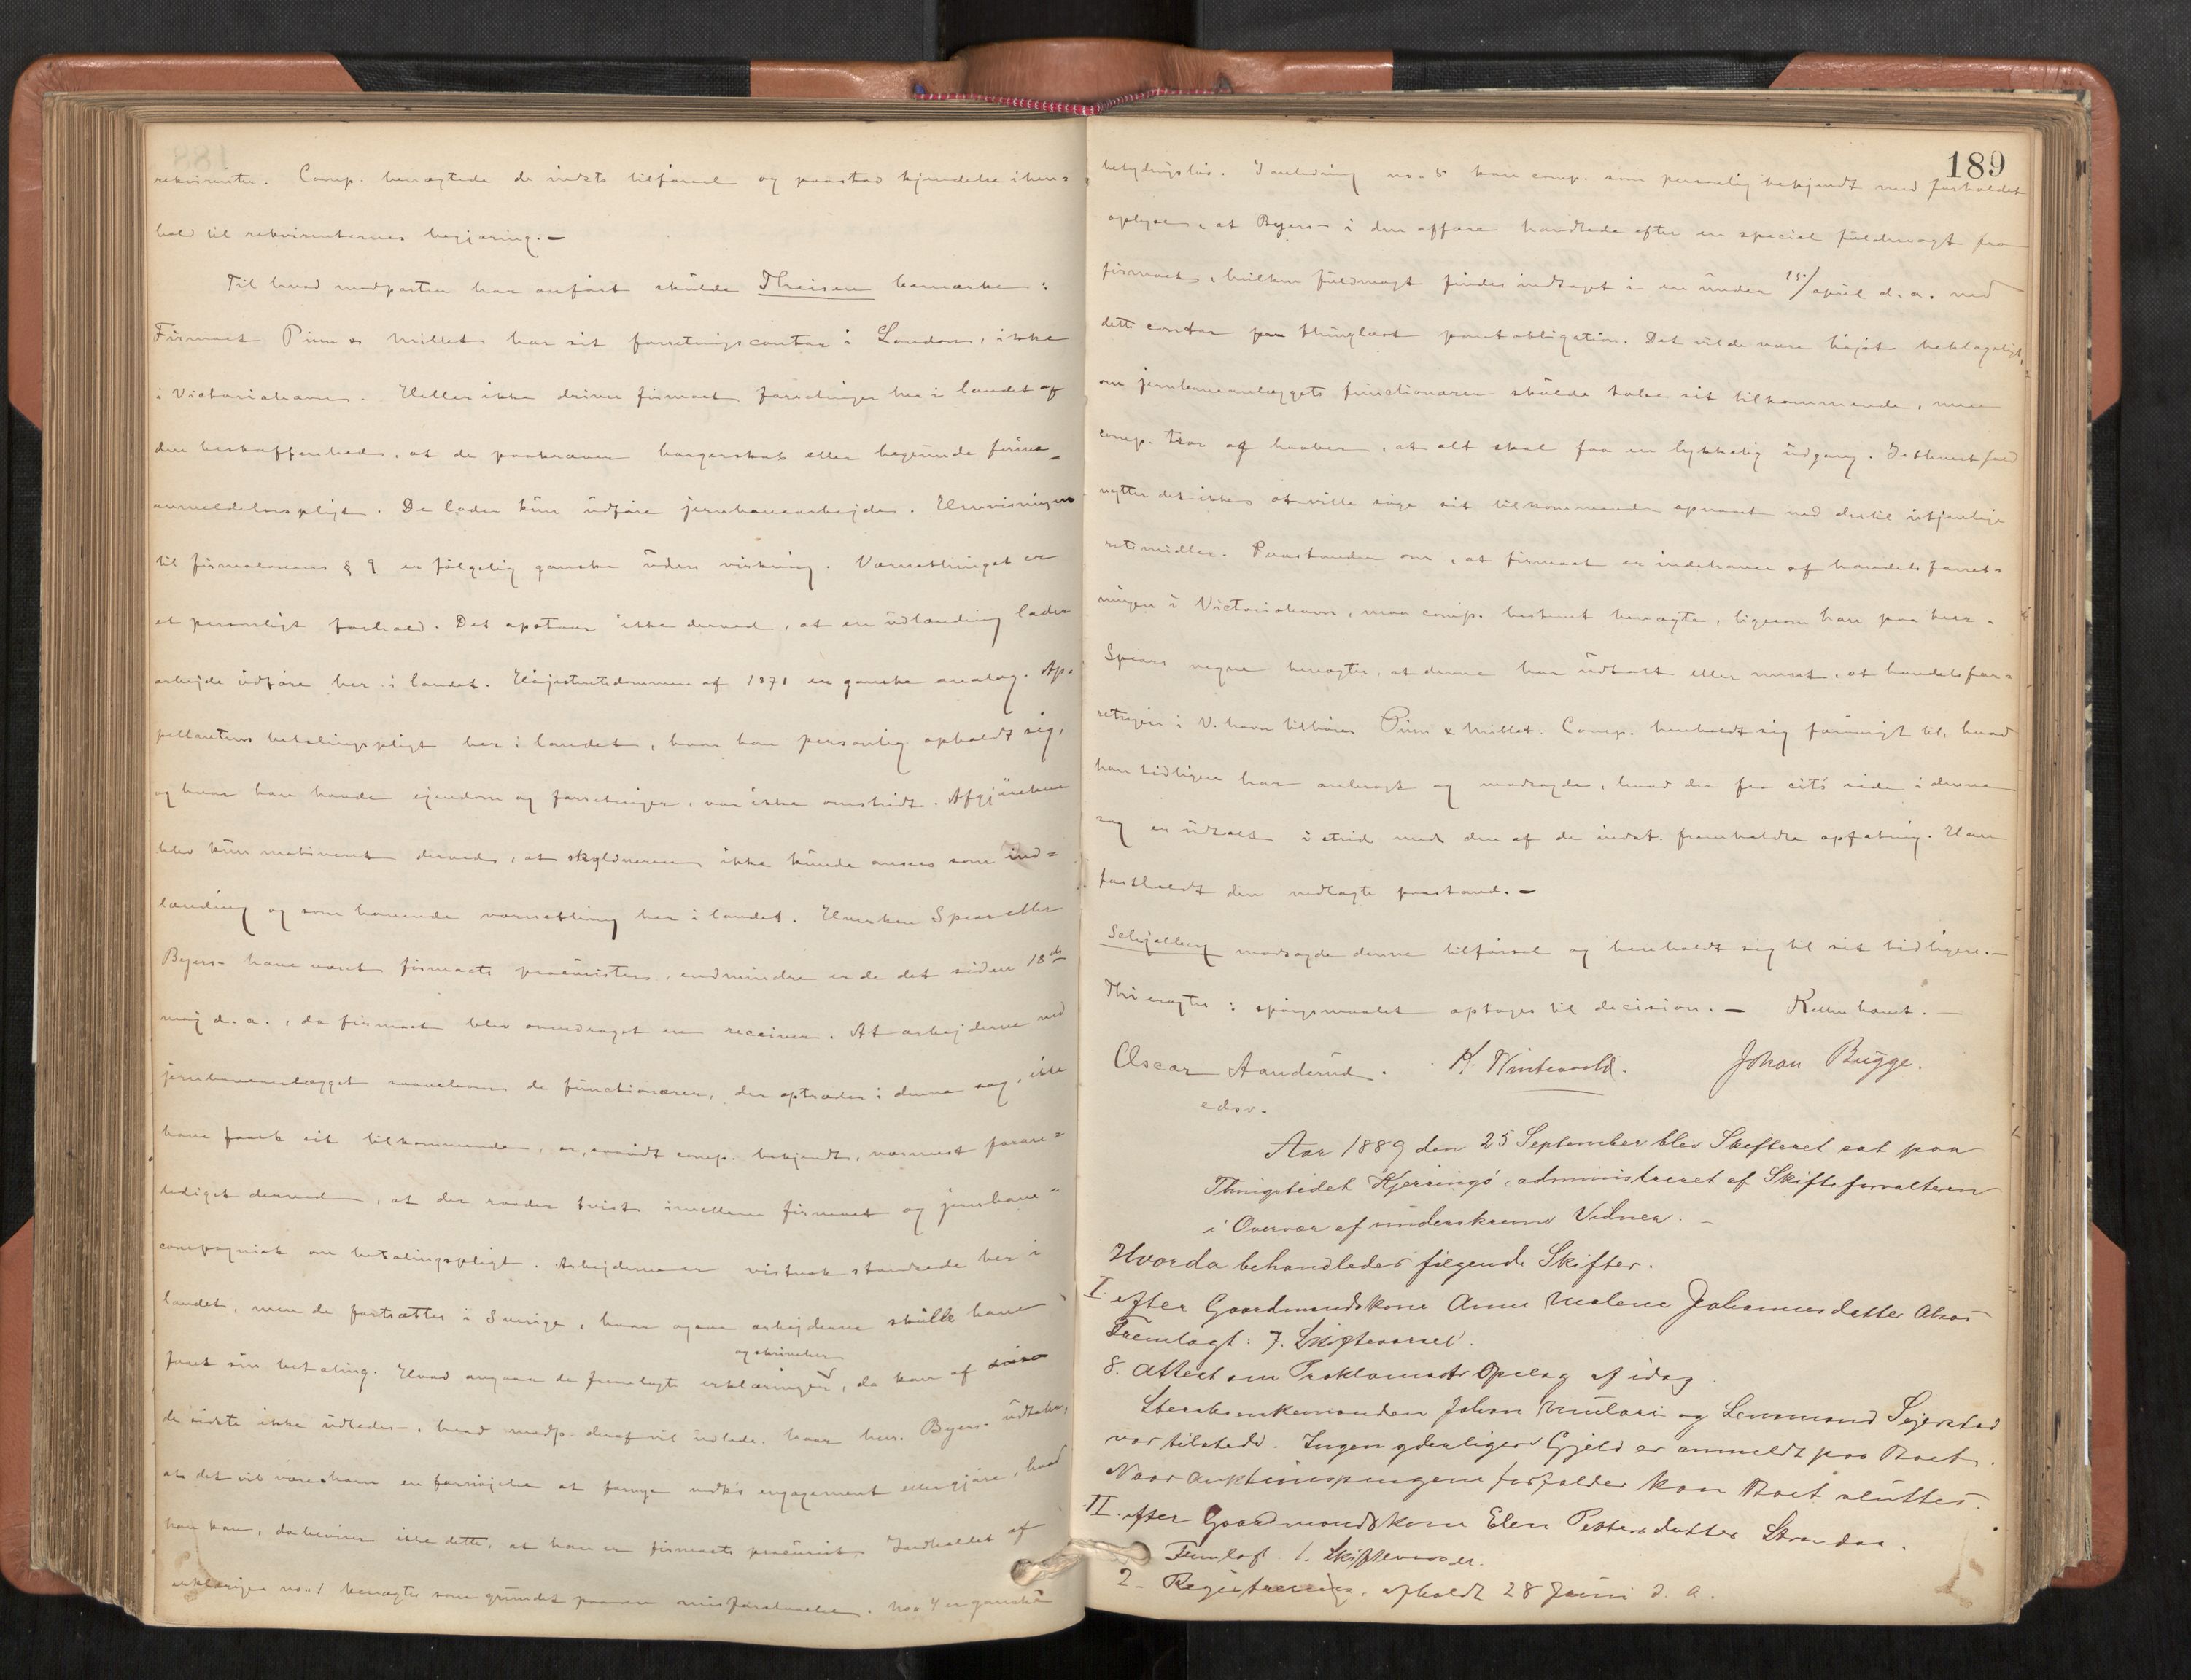 rekvirenter. Comp. benægtede de indsts tilførsel og paastod kjendelse i hen=
hold til rekvirenternes begjæring. —
Til hvad modparten har anført skulde Theisen bemærke:
Firmaet Pinn & Millet har sit forretningscontor i London, ikke
i Victoriahavn. Heller ikke driver firmaet forretninger her i landet af
den beskaffenhed, at de paakræver borgerskab eller begrunde firma=
anmeldelsespligt. De lader kun udføre jernbanearbejder. Henvisningen
til firmalovens § 9 er følgelig ganske uden virkning. Værnethinget er
et personligt forhold. Det opstaar ikke derved, at en udlænding lader
arbejde udføre her i landet. Højesteretsdommen af 1871 er ganske analog. Ap=
pellantens betalingspligt her i landet, hvor han personlig opholdt sig,
og hvor han havde ejendom og forretninger, var ikke omstridt. Afgjørelsen
blev kun motiveret derved, at skyldneren ikke kunde ansees som ind=
lænding og som havende værnething her i landet. Hverken Spear eller
Byers have været firmaets procurister, endmindre er de det siden 18de
maj d. a., da firmaet blev overdraget en receiver. At arbejderne ved
jernbaneanlægget saavelsom de functionærer, der optræder i denne sag, ikke
have faaet sit tilkommende, er, saavidt comp. bekjendt, nærmest foran=
lediget derved, at der raader tvist imellem firmaet og jernbane=
compagniet om betalingspligt. Arbejderne er vistnok standsede her i
landet, men de fortsættes i Sverige, hvor ogsaa arbejderne skulle have
faaet sin betaling. Hvad angaar de fremlagte erklæringer og skrivelser, da kan af
de sidste ikke udledes, hvad modp. deraf vil udlede. Naar herr Byers udtaler,
at det vil være ham en fornøjelse at fornye engagement eller gjøre, hvad
han kan, da beviser ikke dette, at han er firmaets procurist. Indholdet af
erklæringen no. 1 benægtes som grundet paa en misforstaaelse. No. 4 er ganske
189
betydningsløs. I anledning no. 5 kan comp. som personlig bekjendt med forholdet
oplyse, at Byers i den affære handlede efter en special fuldmagt fra
firmaet, hvilken fuldmagt findes indtaget i en under 15/ april d. a. ved
dette contor thinglæst pantobligation. Det vilde være højst beklageligt,
om jernbaneanlæggets functionærer skulde tabe sit tilkommende, men
comp. tror og haaber, at alt skal faa en lykkelig udgang. I ethvert fald
nytter det ikke at ville søge sit tilkommende opnaaet ved dertil utjenlige
retsmidler. Paastanden om, at firmaet er indehaver af handelsforret=
ningen i Victoriahavn, maa comp. bestemt benægte, ligesom han paa herr
Spears vegne benægter, at denne har udtalt eller ment, at handelsfor=
retningen i V.havn tilhører Pinn & Millet. Comp. henholdt sig forøvrigt til, hvad
han tidligere har anbragt og modsagde, hvad der fra cits side i denne
sag er udtalt i strid med den af de indst. fremholdte opfatning. Han
fastholdt den nedlagte paastand. —
Schjelberg modsagde denne tilførsel og henholdt sig til sit tidligere. —
Thi eragtes: spørgsmaalet optages til decision. — Retten hævet. —
Oscar Aanderud. K. Wintervold. Johan Bugge.
edsv.
Aar 1889 den 25 September blev Skifteret sat paa
Thingstedet Kjerringø, administreret af Skifteforvalteren
i Overvær af underskrevne Vidner. —
Hvorda behandledes følgende Skifter.
I. efter Gaardmandskone Anne Malene Johannesdatter Alsos
Fremlagt: 7. Skiftevarsel.
8. Attest om Proklamats Opslag af idag.
Sterbenkemanden Johan og Lensmand Sejerstad
var tilstede. Ingen yderligere Gjeld er anmeldt paa Boet.
Naar Auktionspengene forfalder kan Boet sluttes.
II. efter Gaardmandskone Elen Pettersdatter Strandaa.
Fremlagt 1. Skiftevarsel.
2. Registrering, afholdt 28 Juni d. a.